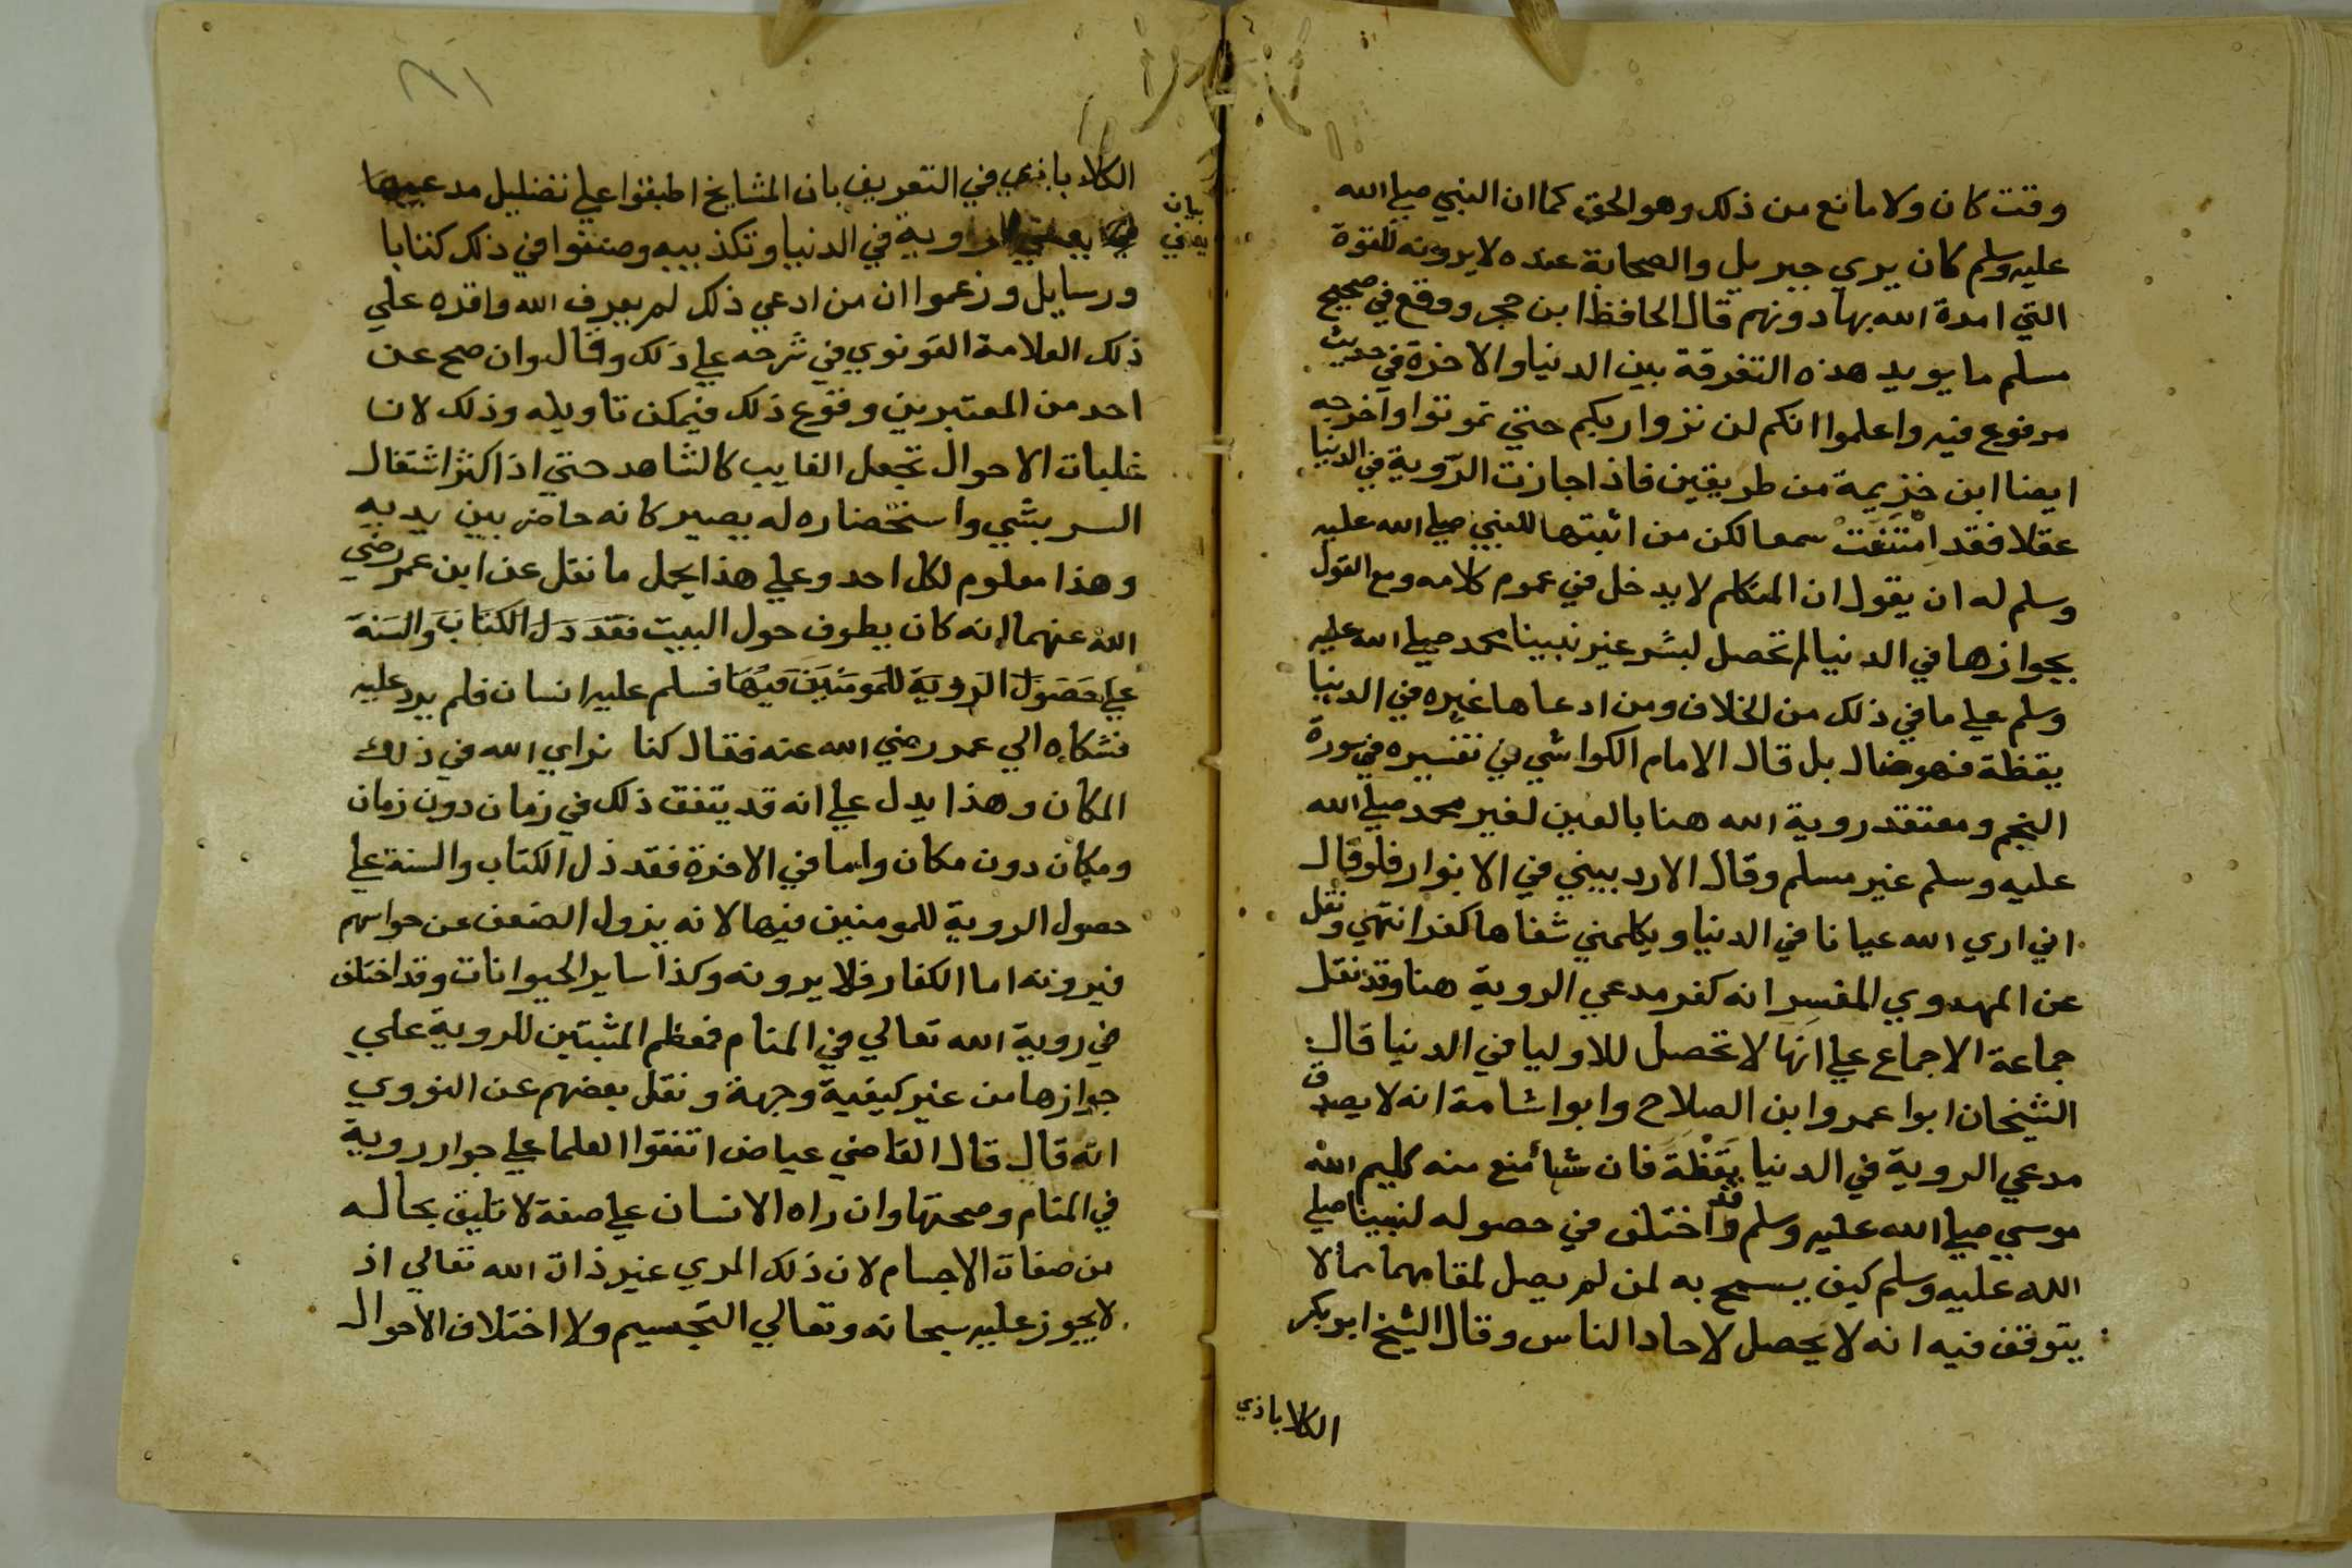 وقت كان ولا مانع من ذلك وهو الحق كما ان النبي صلي الله
عليه وسلم كان يري جبريل والصحابة عنده لا يرونه للقوة
التي امدة الله بها دونهم قال الحافظ ابن حجر ووقع في صحيح
مسلم ما يويد هذه التفرقة بين الدنيا والاخرة في حديث
مرفوع فيه واعلموا انكم لن تروا ربكم حتي تموتوا واخرجه
ايضا ابن خزيمة من طريقين فاذا جازت الروية في الدنيا
عقلا فقد امتنعت سمعا لكن من اثبتها للنبي صلي الله عليه
وسلم له ان يقول ان المتكلم لا يدخل في عموم كلامه ومع القول
بجوازها في الدنيا لم تحصل لبشر غير نبينا محمد صلي الله عليه
وسلم علي ما في ذلك من الخلاف ومن ادعاها غيره في الدنيا
يقظة فهو ضال بل قال الامام الكواشي في تفسيره في سورة
النجم ومعتقد روية الله هنا بالعين لغير محمد صلي الله
عليه وسلم غير مسلم وقال الاردبيني في الانوار فلو قال
اني اري الله عيانا في الدنيا ويكلمني شفاها كفر انتهي ونقل
عن المهدوي المفسر انه كفر مدعي الروية هنا وقد نقل
جماعة الاجماع علي انها لا تحصل للاوليا في الدنيا قال
الشيخان ابوا عمر وابن الصلاح وابوا شامة انه لا يصدق
مدعي الروية في الدنيا يقظة فان شيأ منع منه كليم الله
موسي صلي الله عليه وسلم وقد اختلف في حصوله لنبينا صلي
الله عليه وسلم كيف يسمح به لمن لم يصل لمقامهما مما لا
يتوقف فيه انه لا يحصل لاحاد الناس وقال الشيخ ابو بكر
الكلاباذي
الكلاباذي في التعريف بان المشايخ اطبقوا علي تضليل مدعيها
بيان
يعني
الروية في الدنيا وتكذيبه وصنفوا في ذلك كتابا
ورسايل وزعموا ان من ادعي ذلك لم يعرف الله واقره علي
ذلك العلامة القونوي في شرحه علي ذلك وقال وان صح عن
احد من المعتبرين وقوع ذلك فيمكن تاويله وذلك لان
غلبات الاحوال تجعل الغايب كالشاهد حتي اذا كثر اشتغال
السر بشي واستحضاره له يصير كانه حاضر بين يديه
وهذا معلوم لكل احد وعلي هذا يحمل ما نقل عن ابن عمر رضي
الله عنهما انه كان يطوف حول البيت فقد دل الكتاب والسنة
علي حصول الروية للمومنين فيها فسلم عليه انسان فلم يرد عليه
فشكاه الي عمر رضي الله عنه فقال كنا نراي الله في ذلك
المكان وهذا يدل علي انه قد يتفق ذلك في زمان دون زمان
ومكان دون مكان واما في الاخرة فقد دل الكتاب والسنة علي
حصول الروية للمومنين فيها لانه يزول الضعف عن حواسهم
فيرونه اما الكفار فلا يرونه وكذا ساير الحيوانات وقد اختلف
في روية الله تعالي في المنام فمعظم المثبتين للروية علي
جوازها من غير كيفية وجهة ونقل بعضهم عن النووي
انه قال قال القاضي عياض اتفقوا العلما علي جواز روية
في المنام وصحتها وان راه الانسان علي صفة لا تليق بحاله
من صفات الاجسام لان ذلك المري غير ذات الله تعالي اذ
لا يجوز عليه سبحانه وتعالي التجسيم ولا اختلاف الاحوال